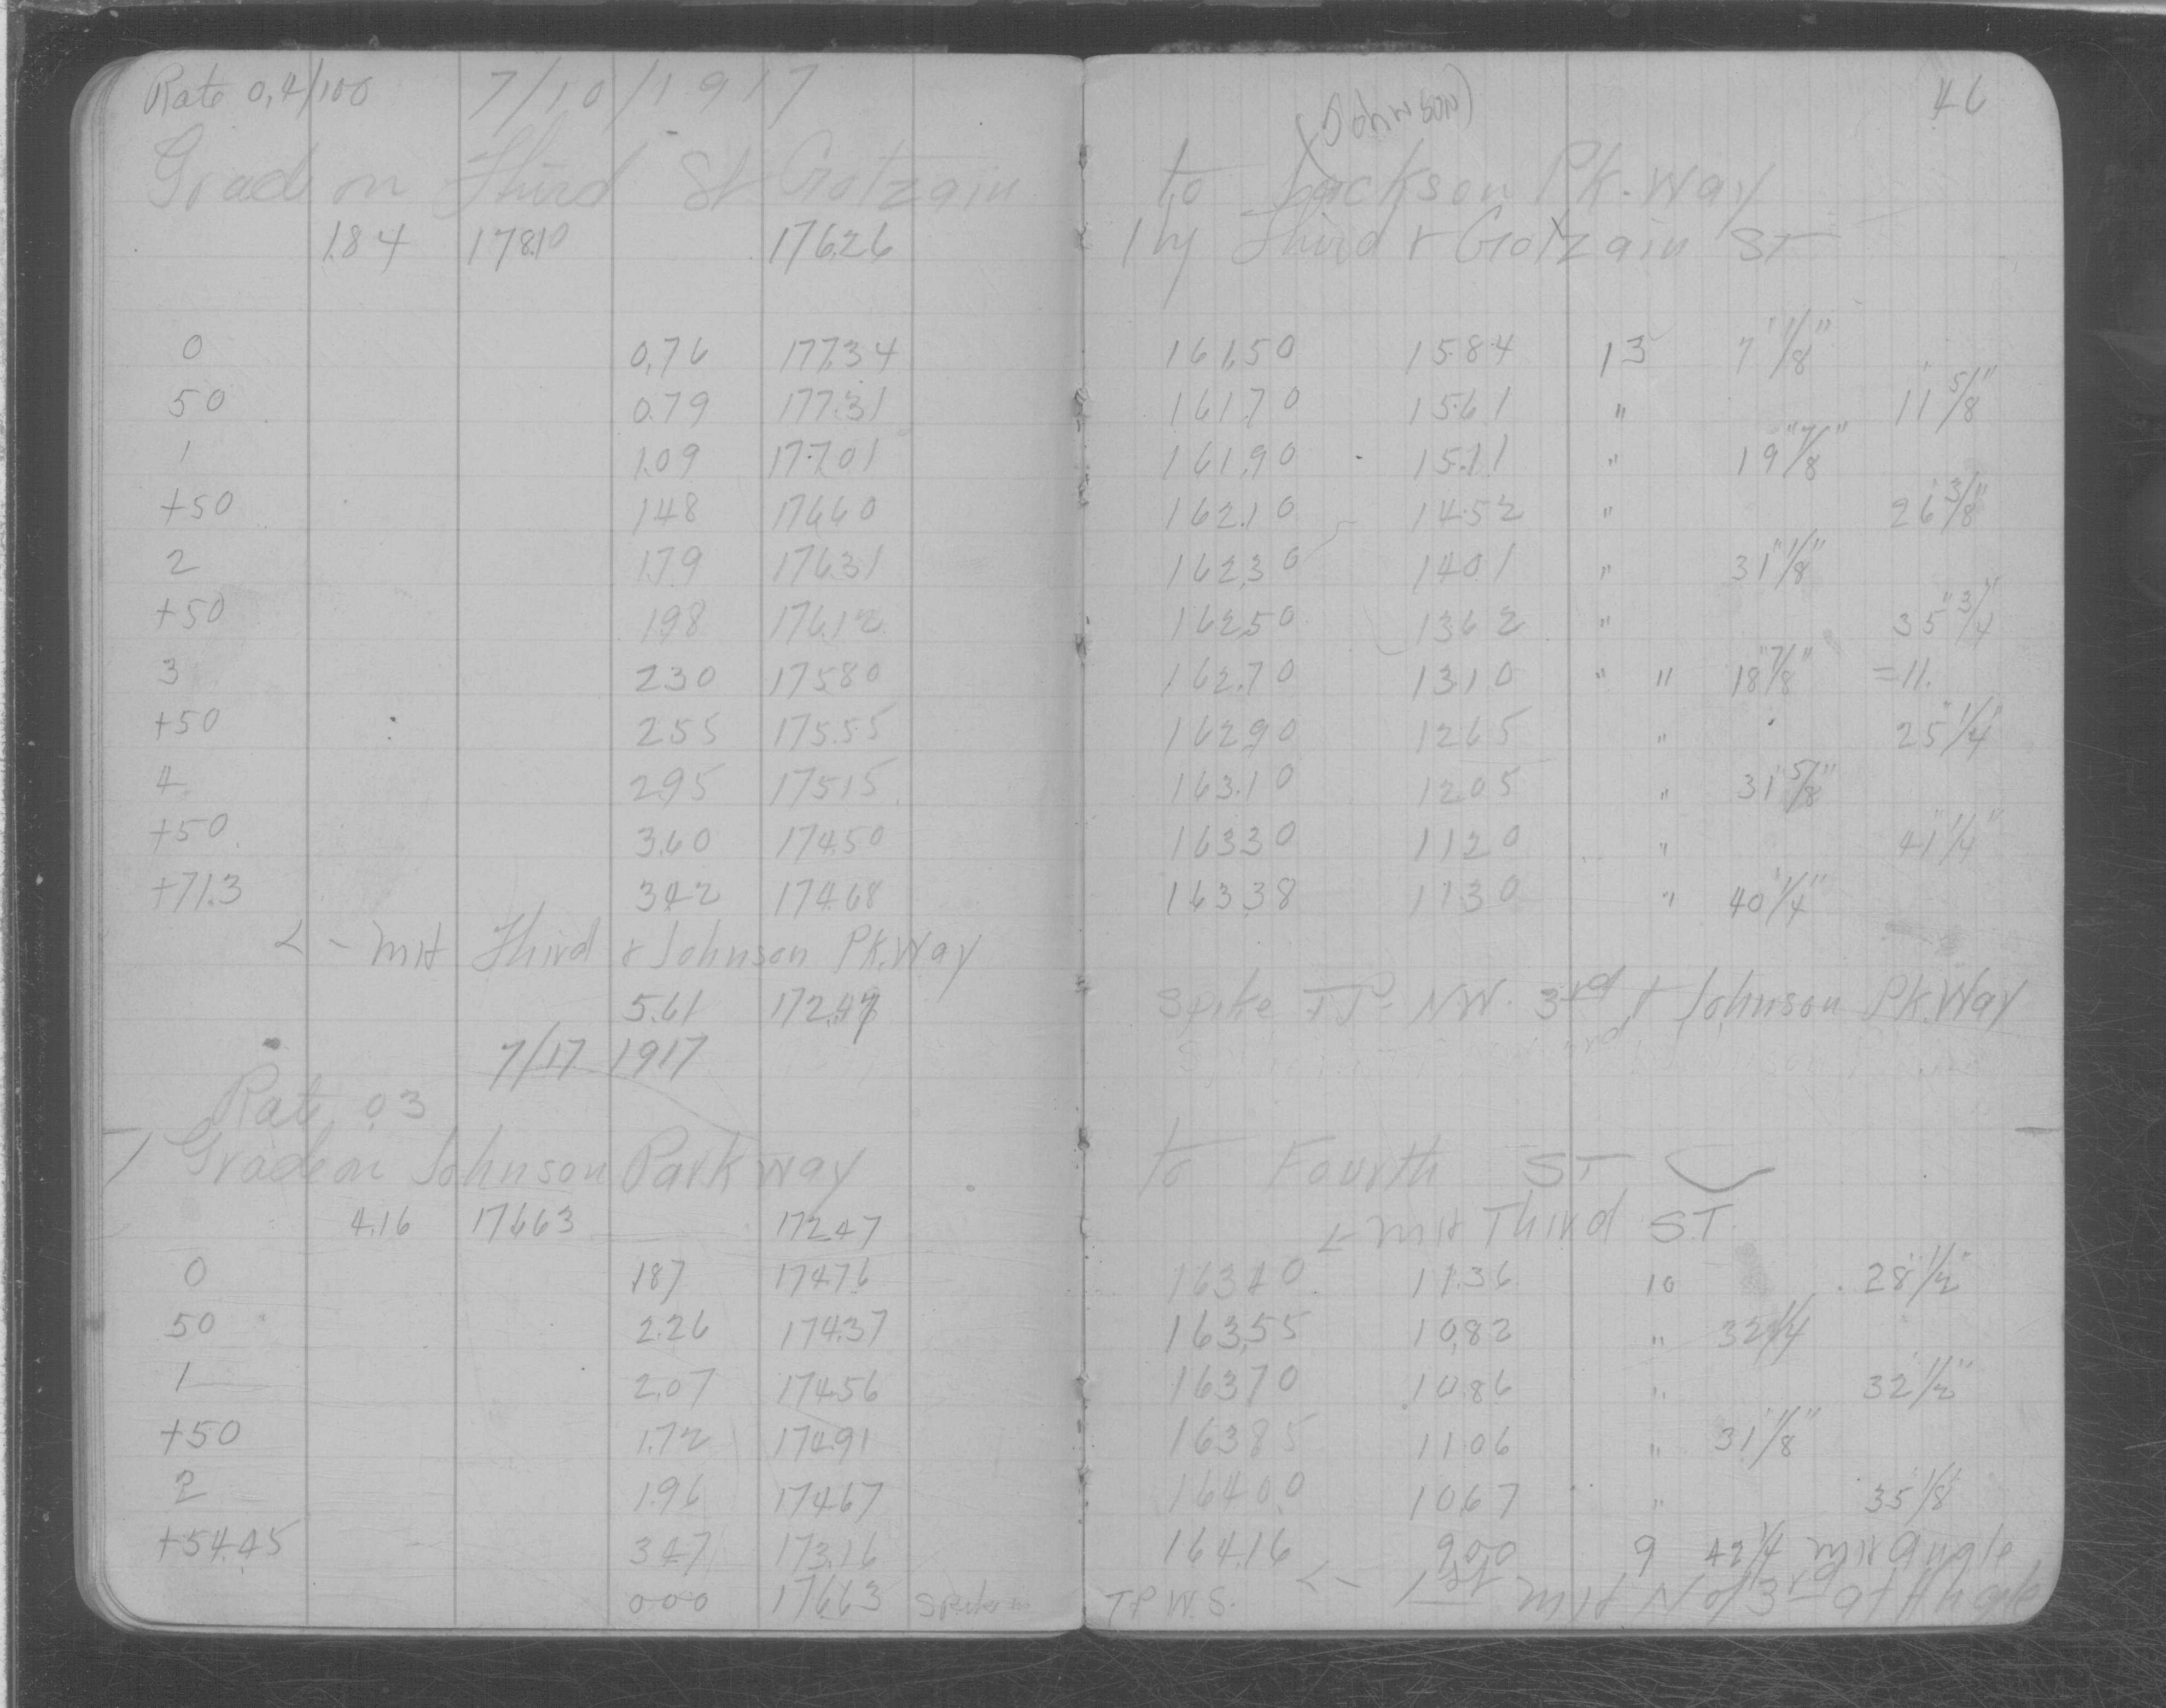 Rate 0,4/100 7/10/1917 46
(Johnson)
Grade on Third St Gotzain to Jackson Pk. Way
1.84 178.10 176.26 1 hy Third & Gotzain ST
0 0.76 177.34 161.50 15.84 13 7" 1/8"
50 0.79 177.31 161.70 15.61 " 11 5/8"
1 1.09 177.01 161.90 15.11 " 19" 7/8"
+50 1.48 176.60 162.10 14.52 " 26 3/8"
2 1.79 176.31 162.30 14.01 " 31" 1/8"
+50 1.98 176.12 162.50 13.62 " 35" 3/4"
3 2.30 175.80 162.70 13.10 " " 18" 7/8" = 11.
+50 2.55 175.55 162.90 12.65 " 25" 1/4"
4 2.95 175.15 163.10 12.05 " 31" 5/8"
+50 3.60 174.50 163.30 11.20 " 41" 1/4"
+71.3 3.42 174.68 163.38 11.30 " 40" 1/4"
<- MH Third & Johnson PK.Way
5.61 172.49 Spike T.P. N.W. 3rd & Johnson PK.Way
7/17 1917
Rate 0.3
Grade on Johnson Park way to Fourth ST
4.16 176.63 172.47 <- MH Third ST.
0 1.87 174.76 163.40 11.36 10 28" 1/2"
50 2.26 174.37 163.55 10.82 " 32 1/4
1 2.07 174.56 163.70 10.86 " 32" 1/2"
+50 1.72 174.91 163.85 11.06 " 31" 1/8"
2 1.96 174.67 164.00 10.67 " 35 1/8"
+54.45 3.47 173.16 164.16 9.00 9 42 1/4 MH Angle
0.00 176.63 Spike in T.P. W.S. <- 1st MH N of 3rd at Angle